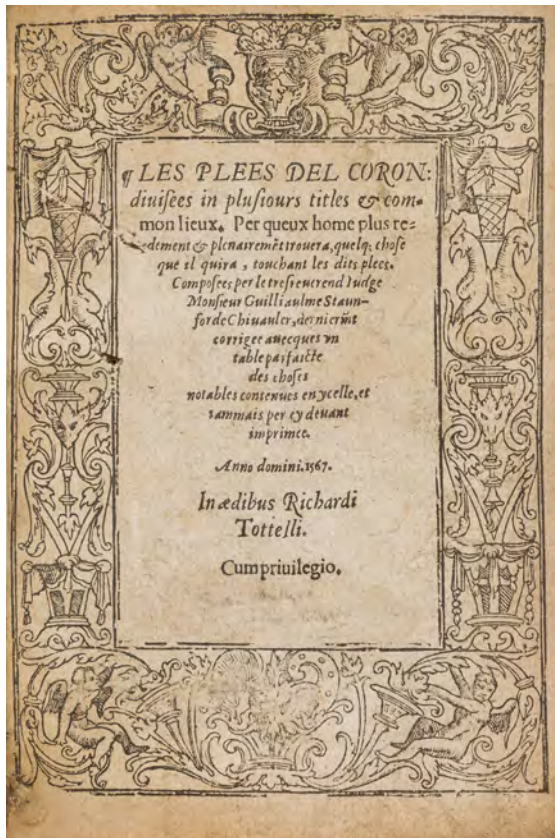 ¶ LES PLEES DEL CORON:
diuiſees in pluſiours titles & com-
mon lieux. Per queux home plus re=
dement & plenairemẽt trouera, quelq; choſe
que il quira, touchant les dits plees.
Compoſees per le treſreuerend Iudge
Monſieur Guilliaulme Staun-
forde Chiuauler, dernierm̃t
corrigee auecques vn
table parfaicte
des choſes
notables contenues en ycelle, et
iammais per cy deuant
imprimee.
Anno domini. 1567.
In ædibus Richardi
Tottelli.
Cum priuilegio.